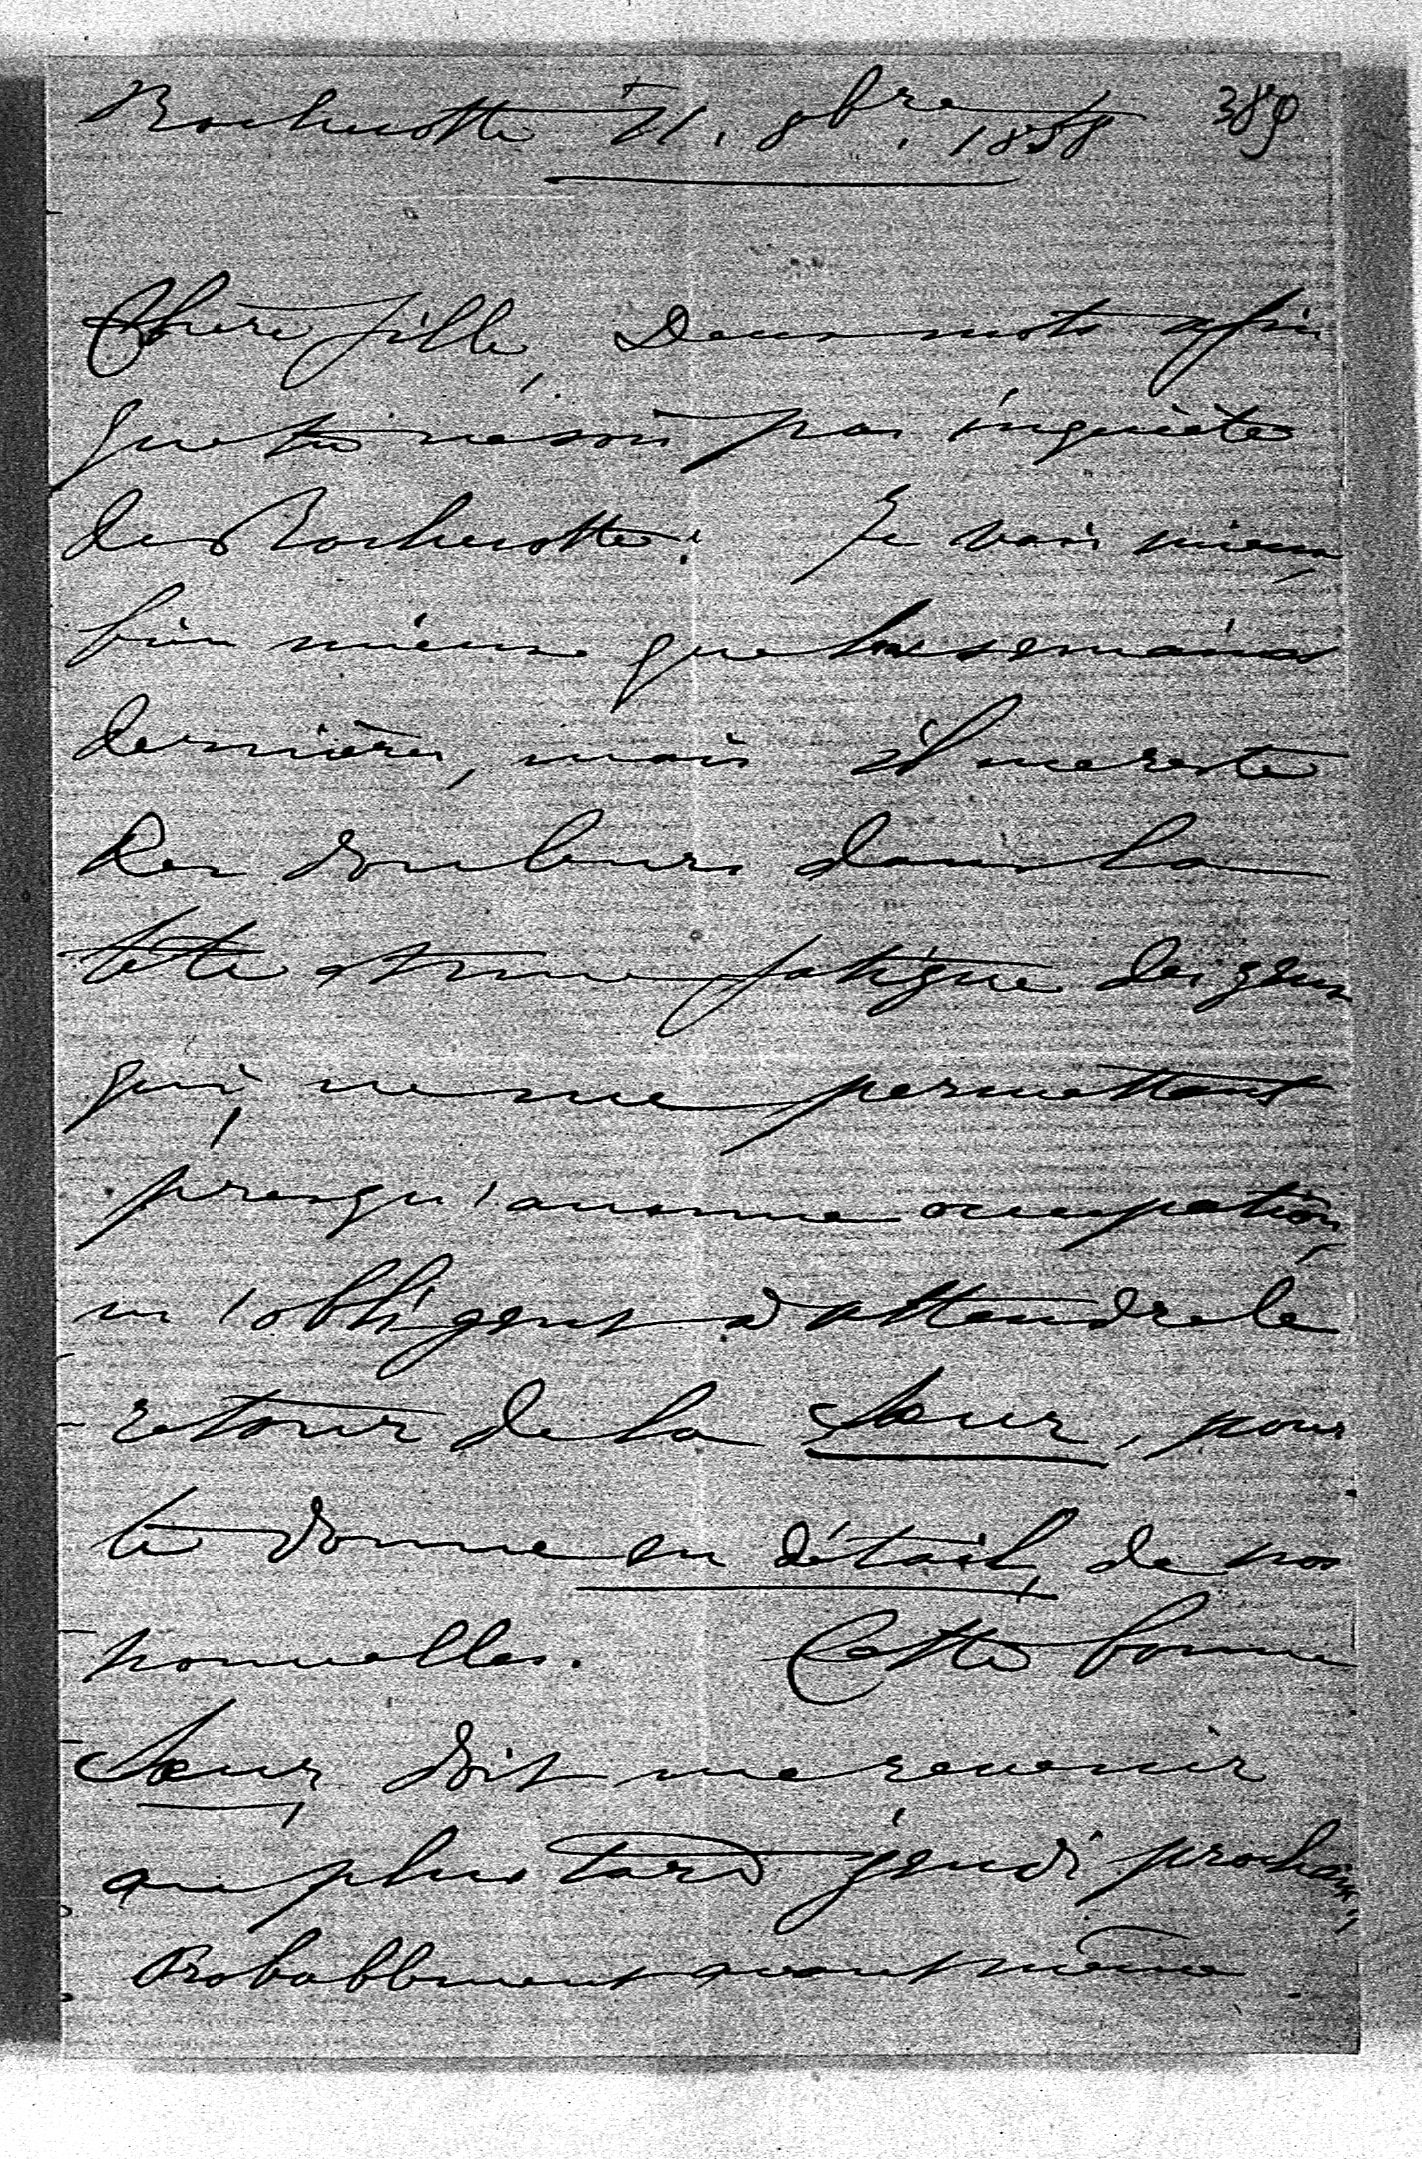 Rochecotte 11. 8bre. 1858 389
Chère fille, Deux mots afin
que tu ne sois pas inquiète
de Rochecotte. Je vais mieux,
bien mieux que les semaines
dernières, mais il me reste
des douleurs dans la
tête et une fatigue des yeux
qui, ne me permettant
presqu'aucune occupation,
m'obligent d'attendre le
retour de la Sœur, pour
te donner en détail, de nos
nouvelles. Cette bonne
Sœur, doit me revenir
au plus tard jeudi prochain,
Probablement avant même